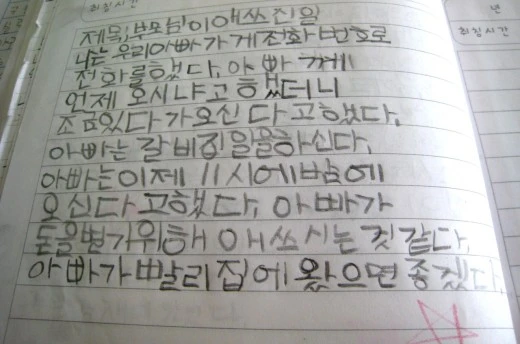 취침시간
년
취침시간
제목; 부모님이 애쓰신일
나는 우리아빠가게 전화 번호로
전화를했다, 아빠 께
언제 오시냐고 했더니
조금있다가오신다고했다,
아빠는 갈비집일을하신다,
아빠는이제 11시에밤에
오신다고했다, 아빠가
돈을벌기위해 애쓰시는것같다,
아빠가빨리집에왔으면 좋겠다